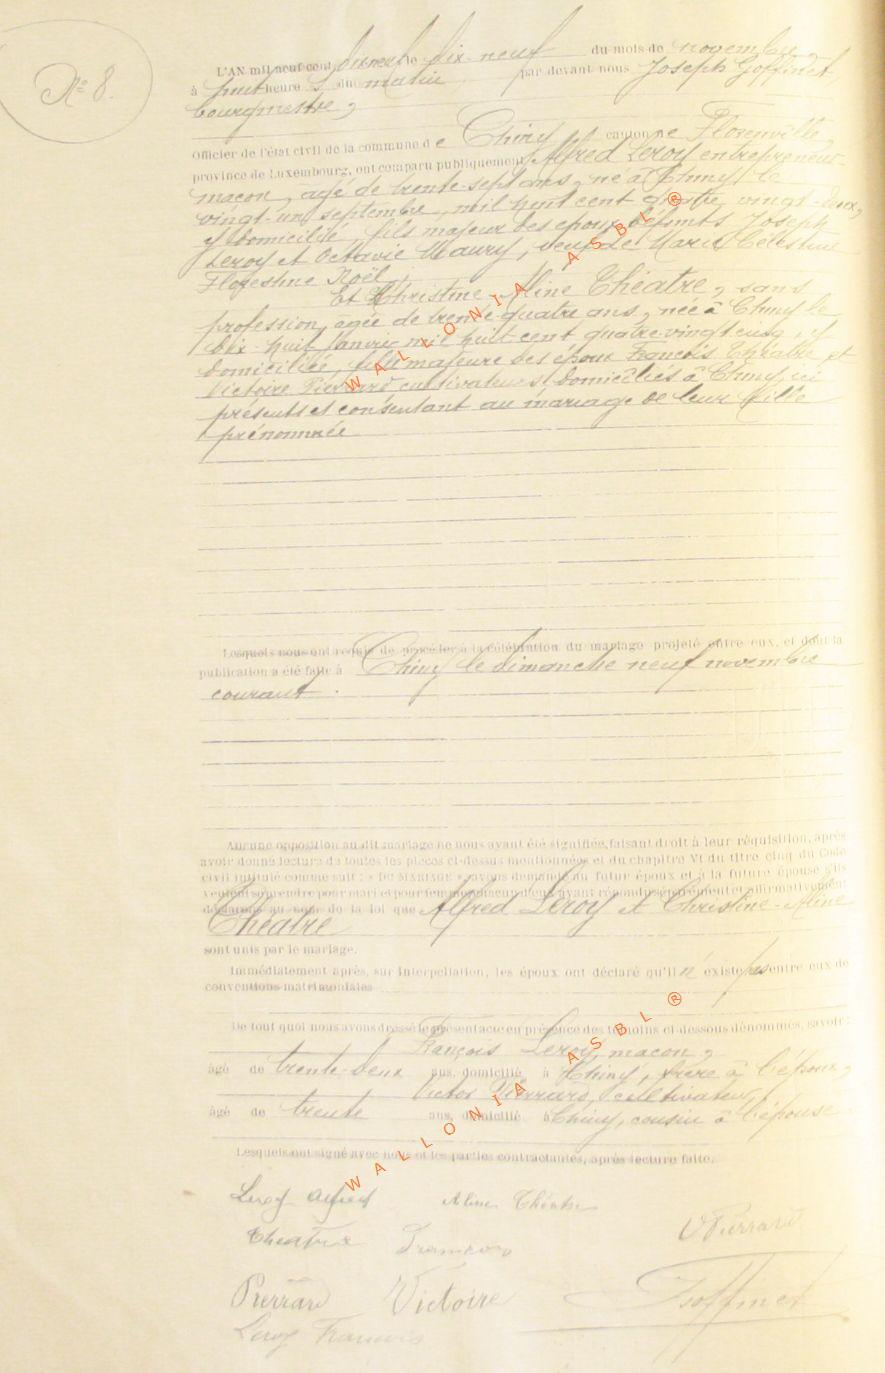 N° 8.
L'AN mil neuf cent dix-neuf le dix-neuf du mois de novembre,
à huit heures du matin, par devant nous Joseph Goffinet,
bourgmestre,
Officier de l'état civil de la commune de Chiny canton de Florenville,
province de Luxembourg, ont comparu publiquement Alfred Leroy entrepreneur-
maçon, agé de trente-sept ans, né à Chiny le
vingt-un septembre, mil huit cent quatre vingt-deux,
y domicilié, fils majeur des epoux défunts Joseph
Leroy et Octavie Maury, veuf de Marie Célestine
Florestine Noël;
Et Christine-Aline Théatre, sans
profession, agée de trente-quatre ans, née à Chiny le
dix-huit Janvier mil huit cent quatre-vingt cinq, y
domiciliée, fille majeure des epoux François Théatre et
Victoire Pierrard cultivateurs domiciliés à Chiny, ici
présents et consentant au mariage de leur fille
prénommée
Lesquels nous ont requis de procéder à la célébration du mariage projeté entre eux, et dont la
publication a été faite à Chiny le dimanche neuf novembre
courant.
Aucune opposition au dit mariage ne nous ayant été signifiée, faisant droit à leur réquisition, après
avoir donné lecture de toutes les pièces ci-dessus mentionnées et du chapitre VI du titre cinq du Code
civil intitulé comme suit : « DU MARIAGE », avons demandé au futur époux et à la future épouse s'ils
veulent se prendre pour mari et pour femme, chacun d'eux ayant répondu séparément et affirmativement
déclarons au nom de la loi que Alfred Leroy et Christine-Aline
Théatre
sont unis par le mariage.
Immédiatement après, sur interpellation, les époux ont déclaré qu'il n'existe pas entre eux de
conventions matrimoniales
De tout quoi nous avons dressé le présent acte en présence des témoins ci-dessous dénommés, savoir:
François Leroy, maçon,
âgé de trente-deux ans, domicilié à Chiny, frère à l'époux,
Victor Pierrard, cultivateur,
âgé de trente ans, domicilié à Chiny, cousin à l'épouse
Lesquels ont signé avec nous et les parties contractantes, après lecture faite.
Leroy Alfred Aline Théatre
Theatre François V Pierrard
Pierrard Victoire J Goffinet
Leroy François
WALLONIA ASBL ®
WALLONIA ASBL ®